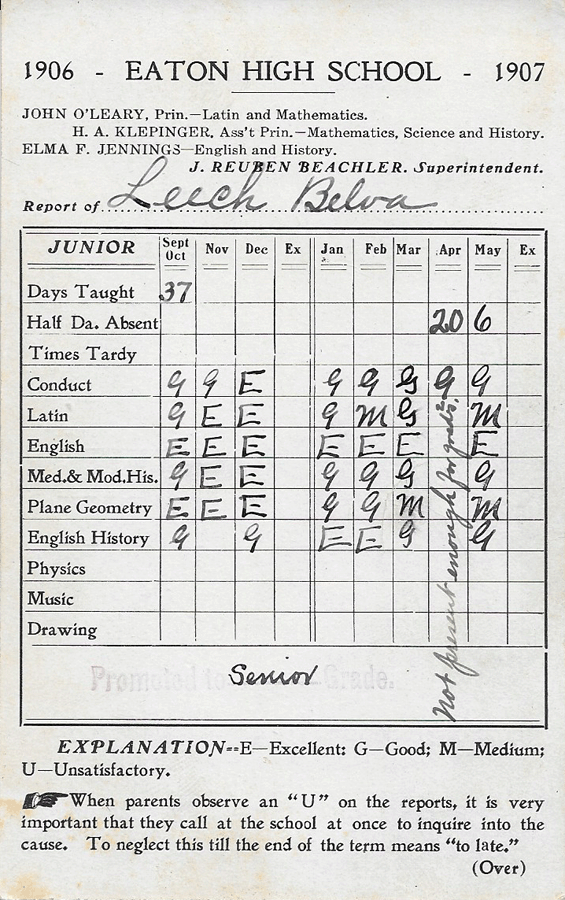 1906 - EATON HIGH SCHOOL - 1907
JOHN O'LEARY, Prin.—Latin and Mathematics.
H. A. KLEPINGER, Ass't Prin.—Mathematics, Science and History.
ELMA F. JENNINGS—English and History.
J. REUBEN BEACHLER. Superintendent.
Report of Leech Belva
JUNIOR Sept Oct Nov Dec Ex Jan Feb Mar Apr May Ex
Days Taught 37
Half Da. Absent 20 6
Times Tardy
Conduct G G E G G G G G
Latin G E E G M G M
English E E E E E E E
Med.& Mod.His. G E E G G G G
Plane Geometry E E E G G M M
English History G G E E G G
Physics
Music
Drawing
Not present enough for grades.
Promoted to Senior Grade.
EXPLANATION--E—Excellent: G—Good; M—Medium;
U—Unsatisfactory.
When parents observe an "U" on the reports, it is very
important that they call at the school at once to inquire into the
cause. To neglect this till the end of the term means "to late."
(Over)